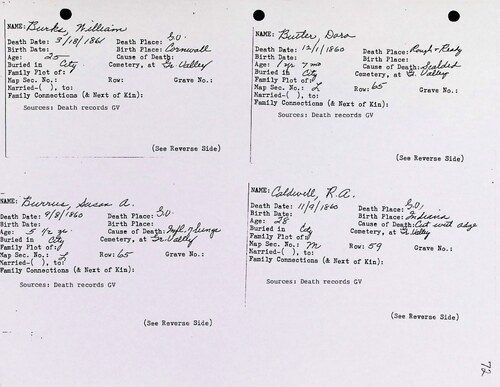 NAME: Burks, William
Death Date: 3/18/1861 Death Place: G.V.
Birth Date: Birth Place: Cornwall
Age: 25 Cause of Death:
Buried in City Cemetery, at Gr Valley
Family Plot of:
Map Sec. No.: Row: Grave No.:
Married-( ), to:
Family Connections (& Next of Kin):
Sources: Death records GV
(See Reverse Side)
NAME: Butler, Dora
Death Date: 12/1/1860 Death Place: Rough & Ready
Birth Date: Birth Place:
Age: 1 yr 7 mo Cause of Death: Scalded
Buried in City Cemetery, at Gr Valley
Family Plot of:
Map Sec. No.: L Row: 65 Grave No.:
Married-( ), to:
Family Connections (& Next of Kin):
Sources: Death records GV
(See Reverse Side)
NAME: Burrus, Susan A.
Death Date: 9/8/1860 Death Place: G.V.
Birth Date: Birth Place:
Age: 5 1/2 yr. Cause of Death: Infl. of lungs
Buried in City Cemetery, at Gr Valley
Family Plot of:
Map Sec. No.: L Row: 65 Grave No.:
Married-( ), to:
Family Connections (& Next of Kin):
Sources: Death records GV
(See Reverse Side)
NAME: Caldwell, R.A.
Death Date: 11/9/1860 Death Place: G.V.
Birth Date: Birth Place: Indiana
Age: 28 Cause of Death: Cut with adze
Buried in City Cemetery, at Gr Valley
Family Plot of:
Map Sec. No.: M Row: 59 Grave No.:
Married-( ), to:
Family Connections (& Next of Kin):
Sources: Death records GV
(See Reverse Side)
72